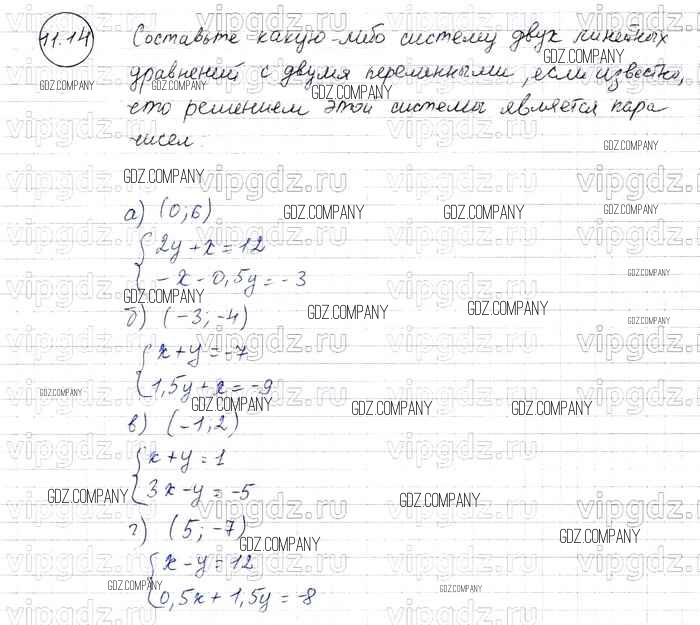 11.14 Составьте какую-либо систему двух линейных
уравнений с двумя переменными, если известно,
что решением этой системы является пара
чисел:
а) (0; 6)
2y + x = 12
-x - 0,5y = -3
б) (-3; -4)
x + y = -7
1,5y + x = -9
в) (-1; 2)
x + y = 1
3x - y = -5
г) (5; -7)
x - y = 12
0,5x + 1,5y = -8
vipgdz.ru
GDZ.COMPANY